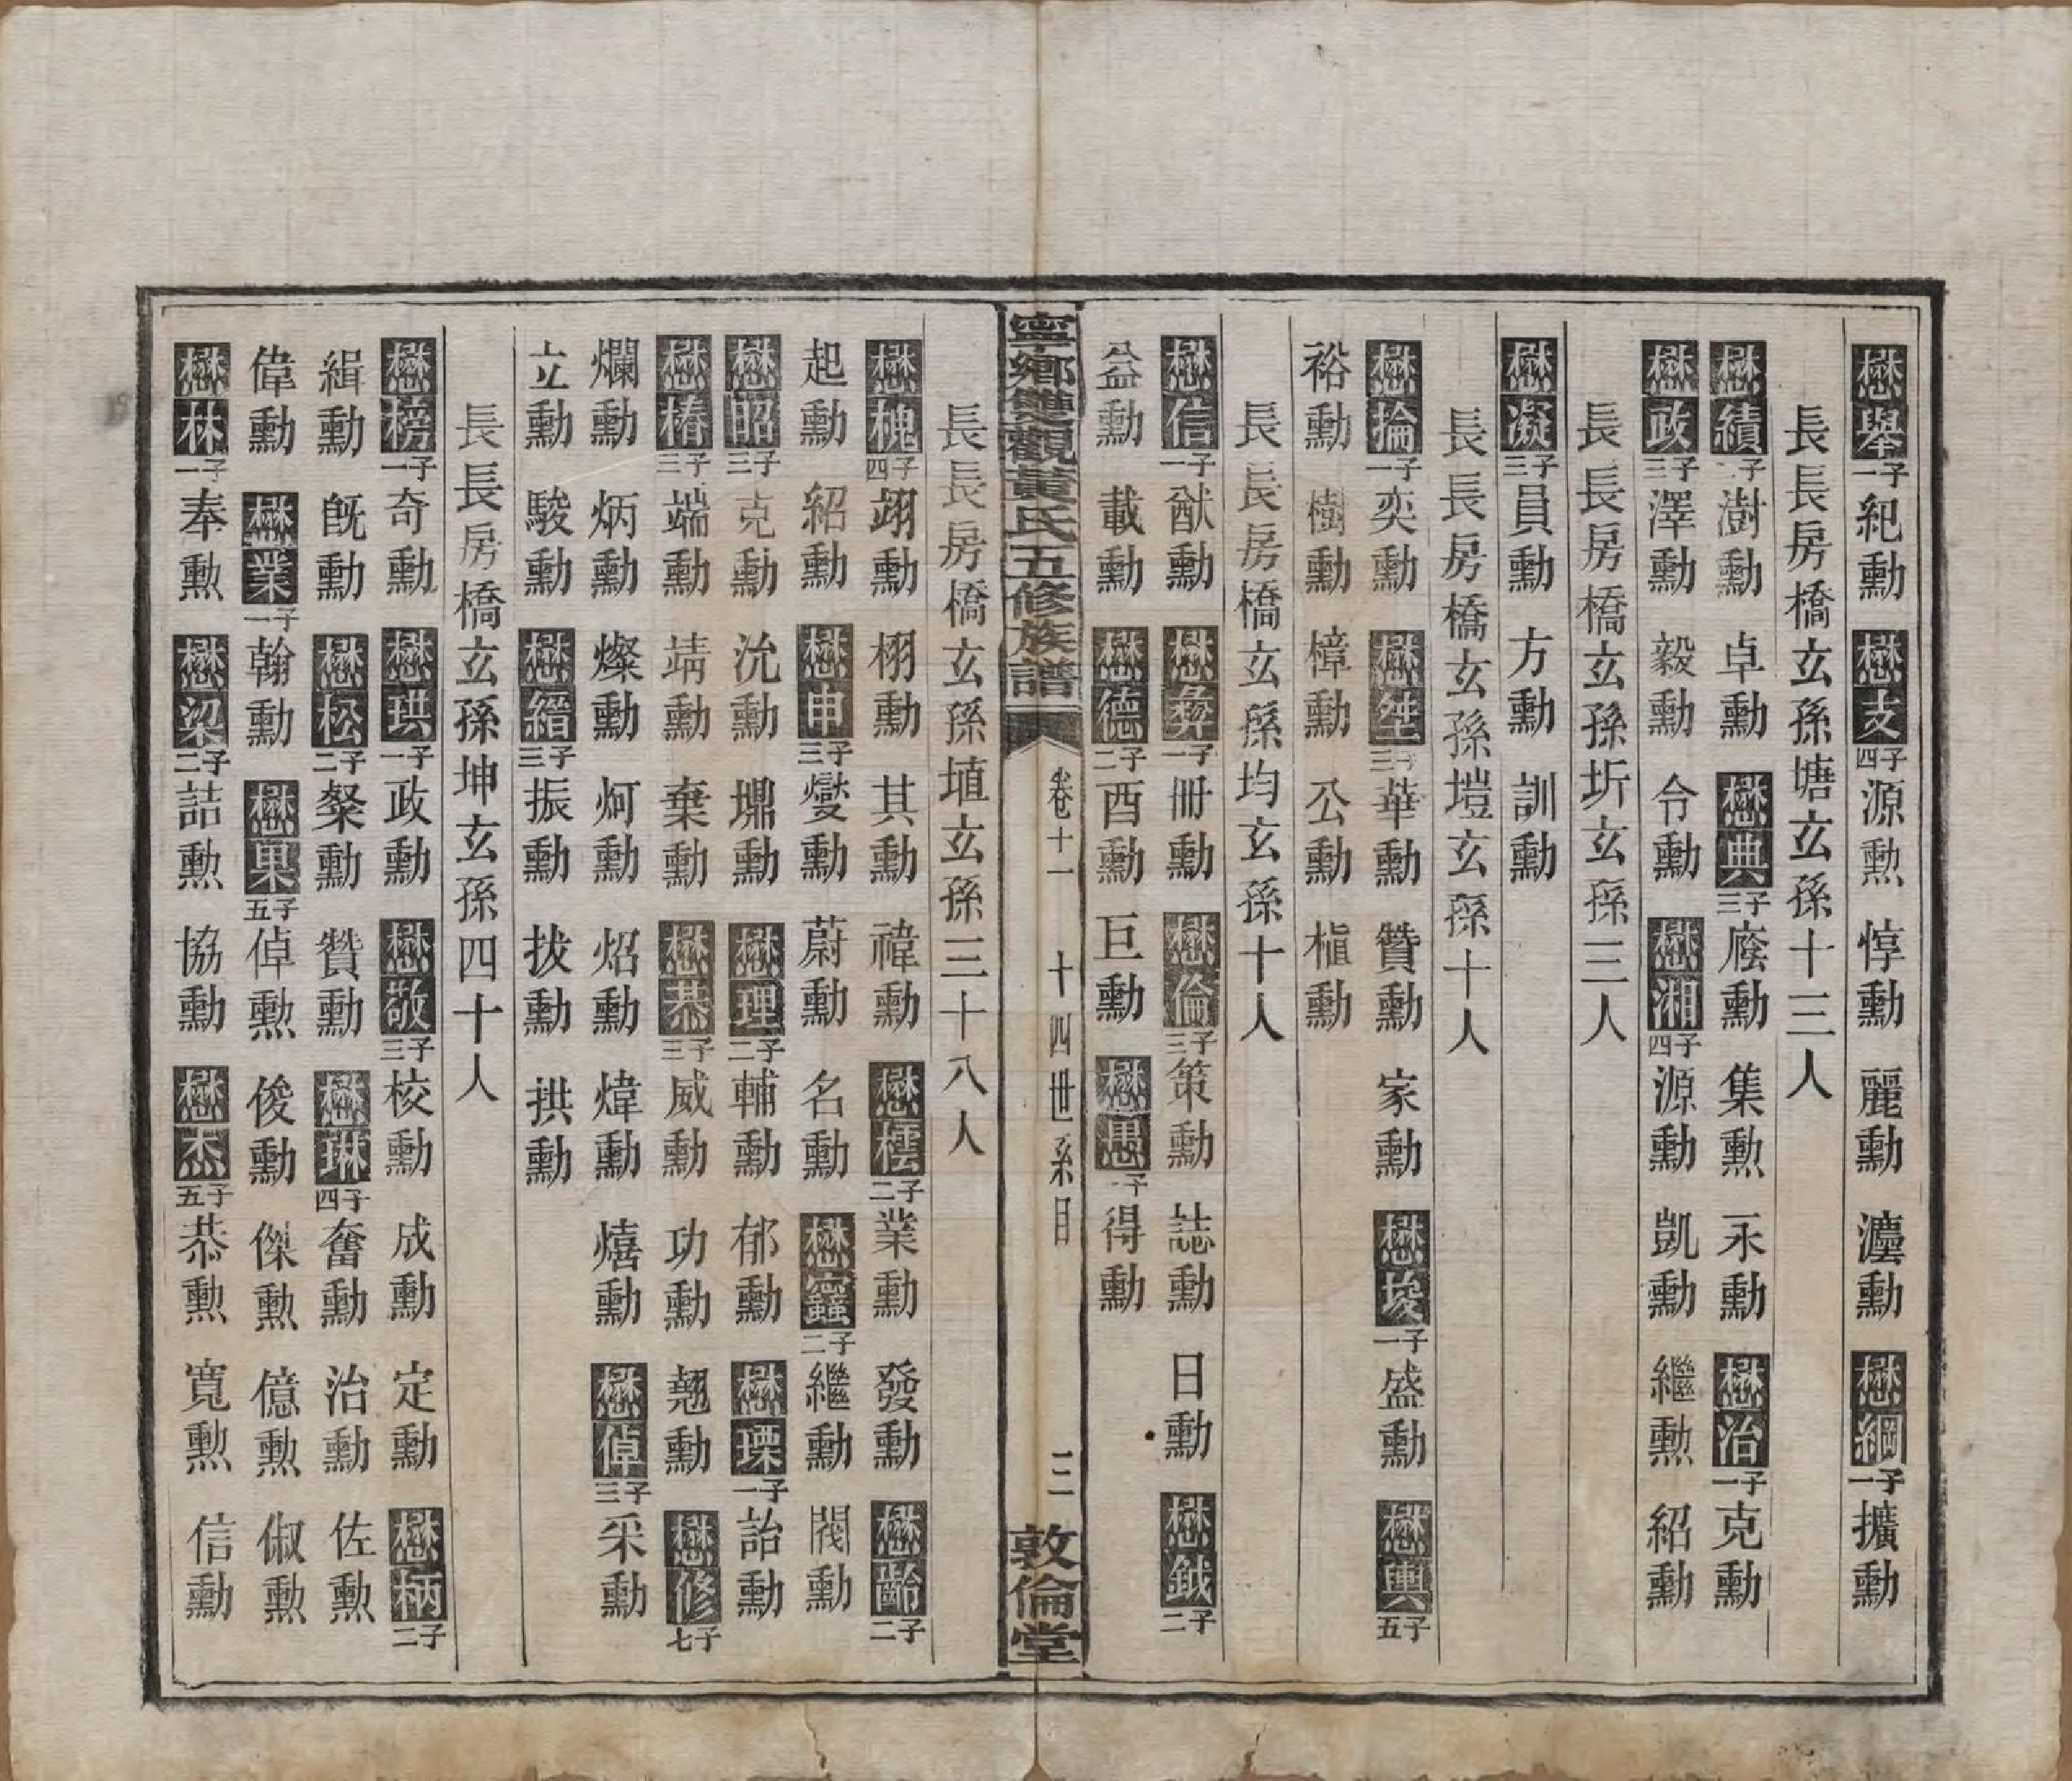 懋舉一子紀勳 懋支四子源勲 惇勳 麗勳 瀍勳 懋綱一子擴勳
長長房橋玄孫塘玄孫十三人
懋績二子澍勳 卓勳 懋典三子廕勳 集勲 永勳 懋治一子克勳
懋政三子澤勳 毅勳 令勳 懋湘四子源勳 凱勳 繼勲 紹勳
長長房橋玄孫圻玄孫三人
懋凝三子員勳 方勳 訓勳
長長房橋玄孫塏玄孫十人
懋掄一子奕勳 懋絟三子華勳 贊勳 家勳 懋埈一子盛勳 懋輿五子
裕勳 樹勳 樟勳 公勳 楨勳
長長房橋玄孫均玄孫十人
懋信一子猷勳 懋彜一子冊勳 懋倫三子策勳 誌勳 日勳 懋鉞二子
益勳 載勳 懋德二子酉勳 巨勳 懋愚一子得勳
寧鄉雙觀黃氏五修族譜 卷十一 十四世系目 三 敦倫堂
長長房橋玄孫埴玄孫三十八人
懋槐四子翊勳 栩勳 其勳 禕勳 懋樰二子業勳 發勳 懋齡二子
起勳 紹勳 懋申三子燮勳 蔚勳 名勳 懋靈二子繼勳 閥勳
懋昭三子克勳 沇勳 㙡勳 懋理二子輔勳 郁勳 懋瑮一子詒勳
懋椿三子端勳 靖勳 棄勳 懋恭三子威勳 功勳 翹勳 懋修七子
爛勳 炳勳 燦勳 炣勳 炤勳 煒勳 熺勳 懋倬三子采勳
立勳 駿勳 懋縉三子振勳 拔勳 拱勳
長長房橋玄孫坤玄孫四十人
懋榜一子奇勳 懋珙一子政勳 懋敬三子校勳 成勳 定勳 懋柄二子
緝勳 旣勳 懋松二子粲勳 贊勳 懋琳四子奮勳 治勳 佐勲
偉勳 懋業一子翰勳 懋果五子倬勲 俊勳 傑勲 億勲 俶勲
懋林一子奉勲 懋梁二子詰勲 協勳 懋杰五子恭勲 寬勲 信勳